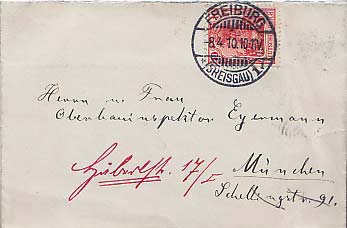 FREIBURG
8.4.10.10-11V.
(BREISGAU) 1
Herrn u. Frau
Oberbauinspektor Eyermann
17/I München
Schellingstr. 91.